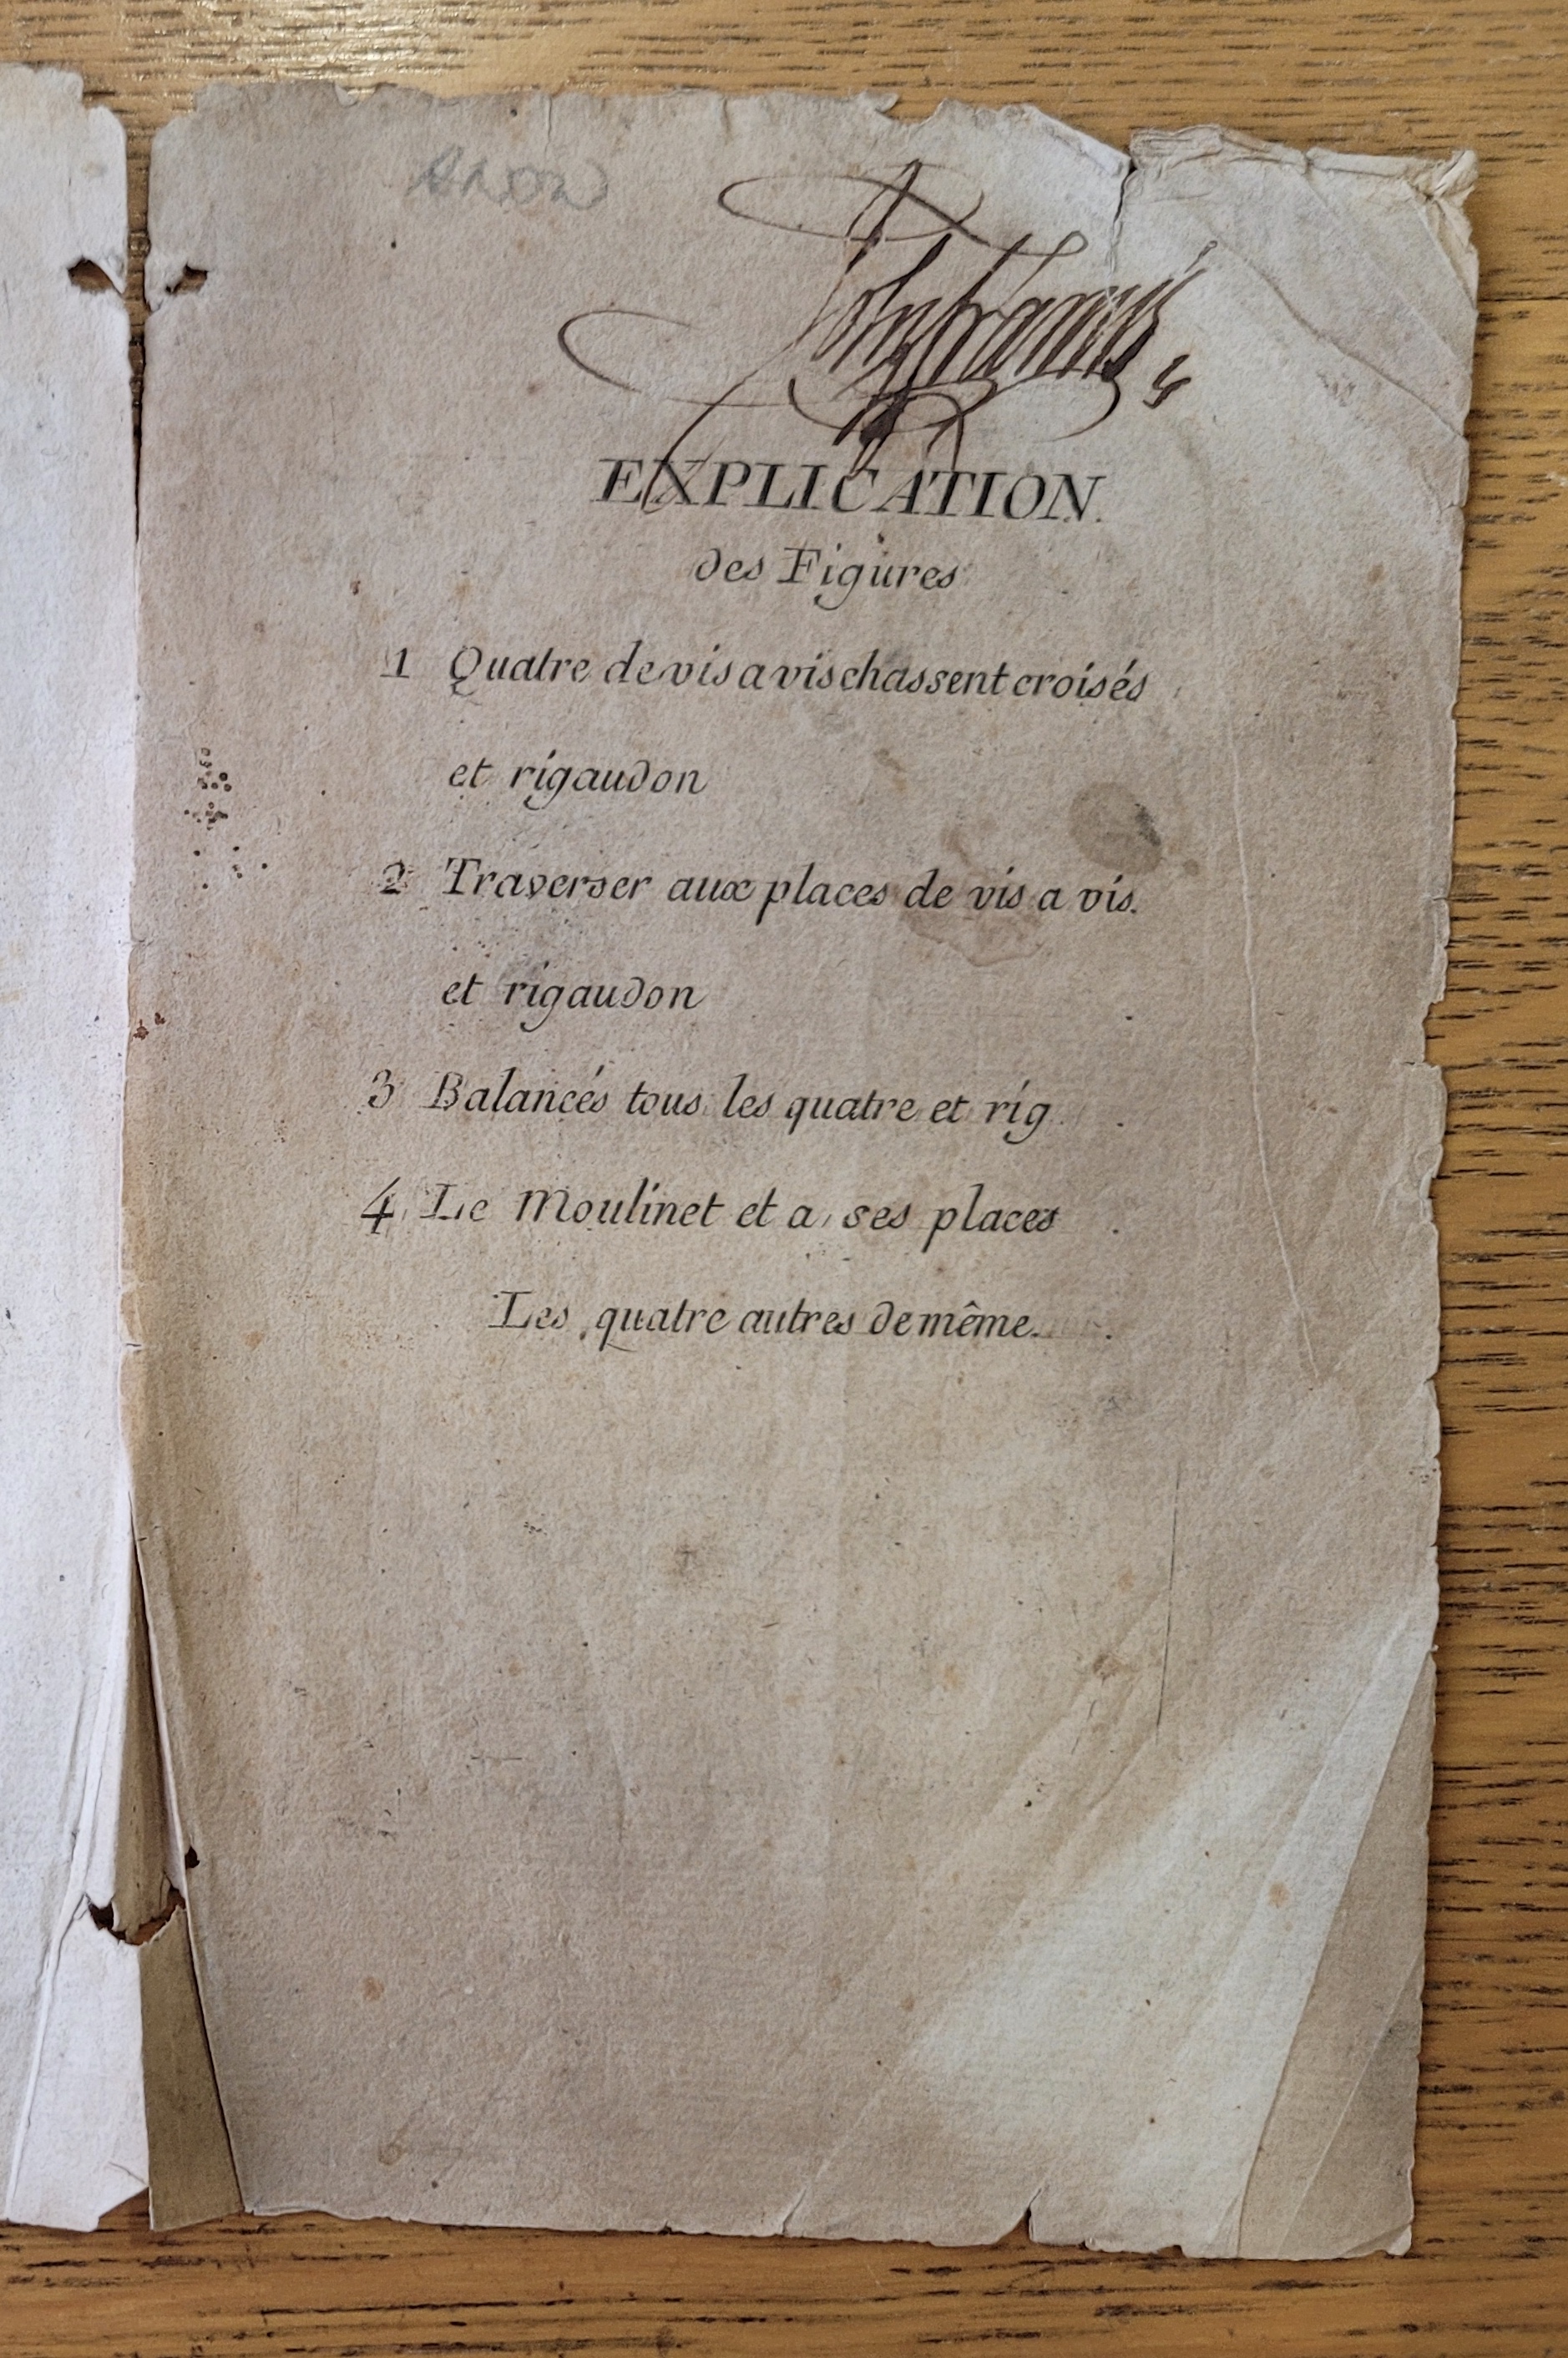 ANON
EXPLICATION.
des Figures
1 Quatre de vis a vis chassent croisés
et rigaudon
2 Traverser aux places de vis a vis.
et rigaudon
3 Balancés tous les quatre et rig.
4 Le Moulinet et a ses places.
Les quatre autres de même.